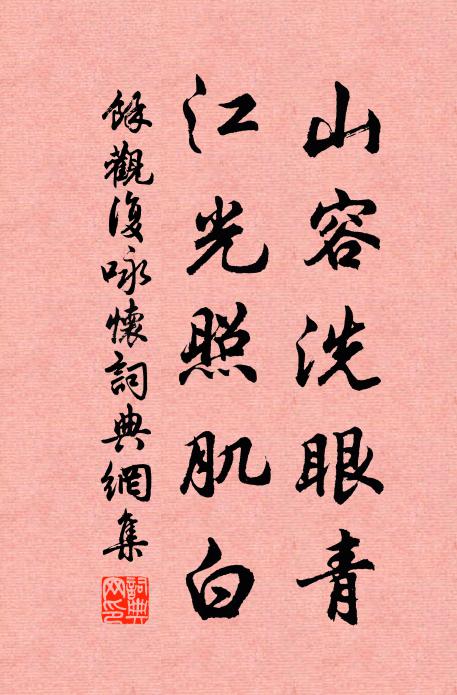 山容洗眼青
江光照肌白
餘觀復咏懷詞典網集
詞典網印